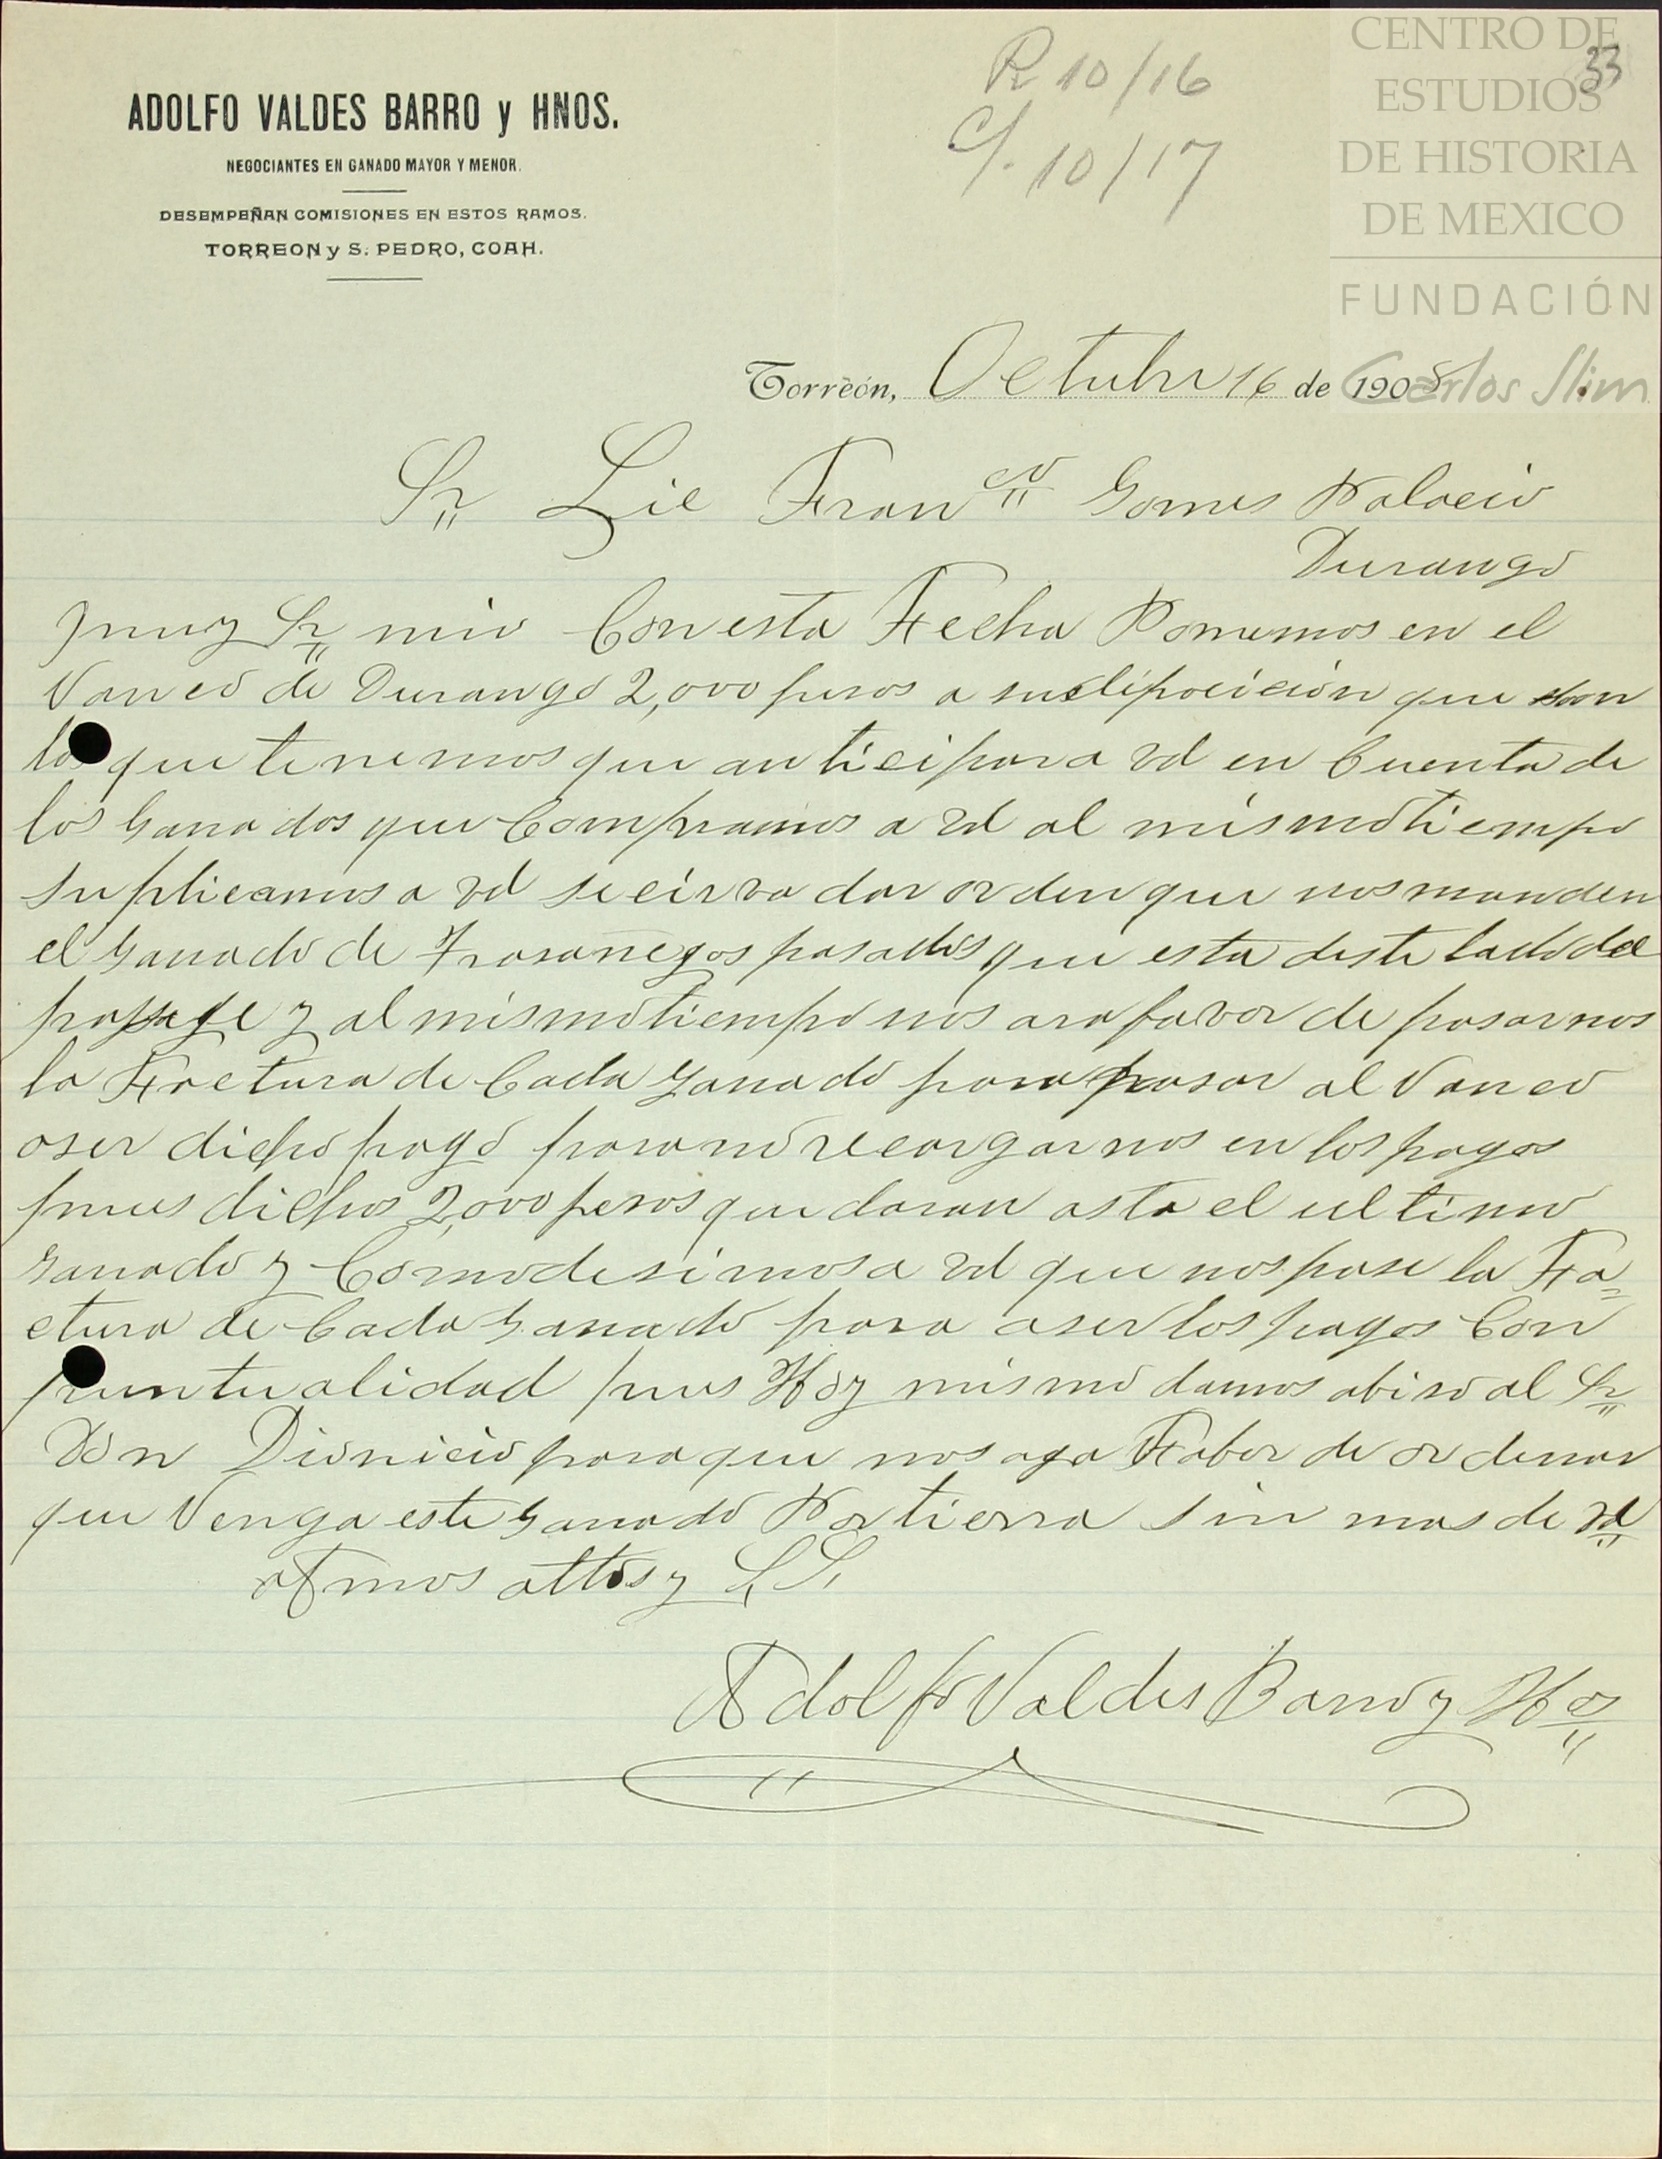 CENTRO DE
ESTUDIOS
DE HISTORIA
DE MEXICO
FUNDACIÓN
Carlos Slim
33
R 10/16
C/. 10/17
ADOLFO VALDES BARRO y HNOS.
NEGOCIANTES EN GANADO MAYOR Y MENOR.
DESEMPEÑAN COMISIONES EN ESTOS RAMOS.
TORREON y S. PEDRO, COAH.
Torreón, Octubre 16 de 190
Sr Lic Franco Gomes Palacio
Durango
Muy Sr mio Con esta Fecha Ponemos en el
Vanco de Durango 2,000 pesos a su dipocición que son
los que tenemos que anticipar a vd en Cuenta de
los Ganados que Compramos a vd al mismo tiempo
suplicamos a vd se cirva dar orden que nos manden
el Ganado de Trasañegos pasados que esta deste lado del
y al mismo tiempo nos ara favor de pasarnos
la Factura de Cada Ganado para pasar al Vanco
aser dicho pago para no recargarnos en los pagos
pues dichos 2,000 pesos quedaran asta el ultimo
Ganado y Como desimos a vd que nos pase la Fa=
ctura de Cada Ganado para aser los pagos Con
puntualidad pues Hoy mismo damos abiso al Sr
Don Dionicio para que nos aga Fabor de ordenar
que Venga este Ganado Por tierra sin mas de vd
afmos attos y S.S.
Adolfo Valdes Barro y Hos